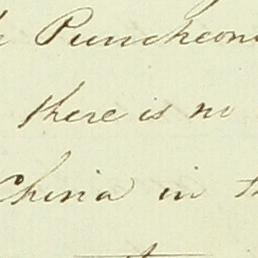 Puncheons
there is no
China in